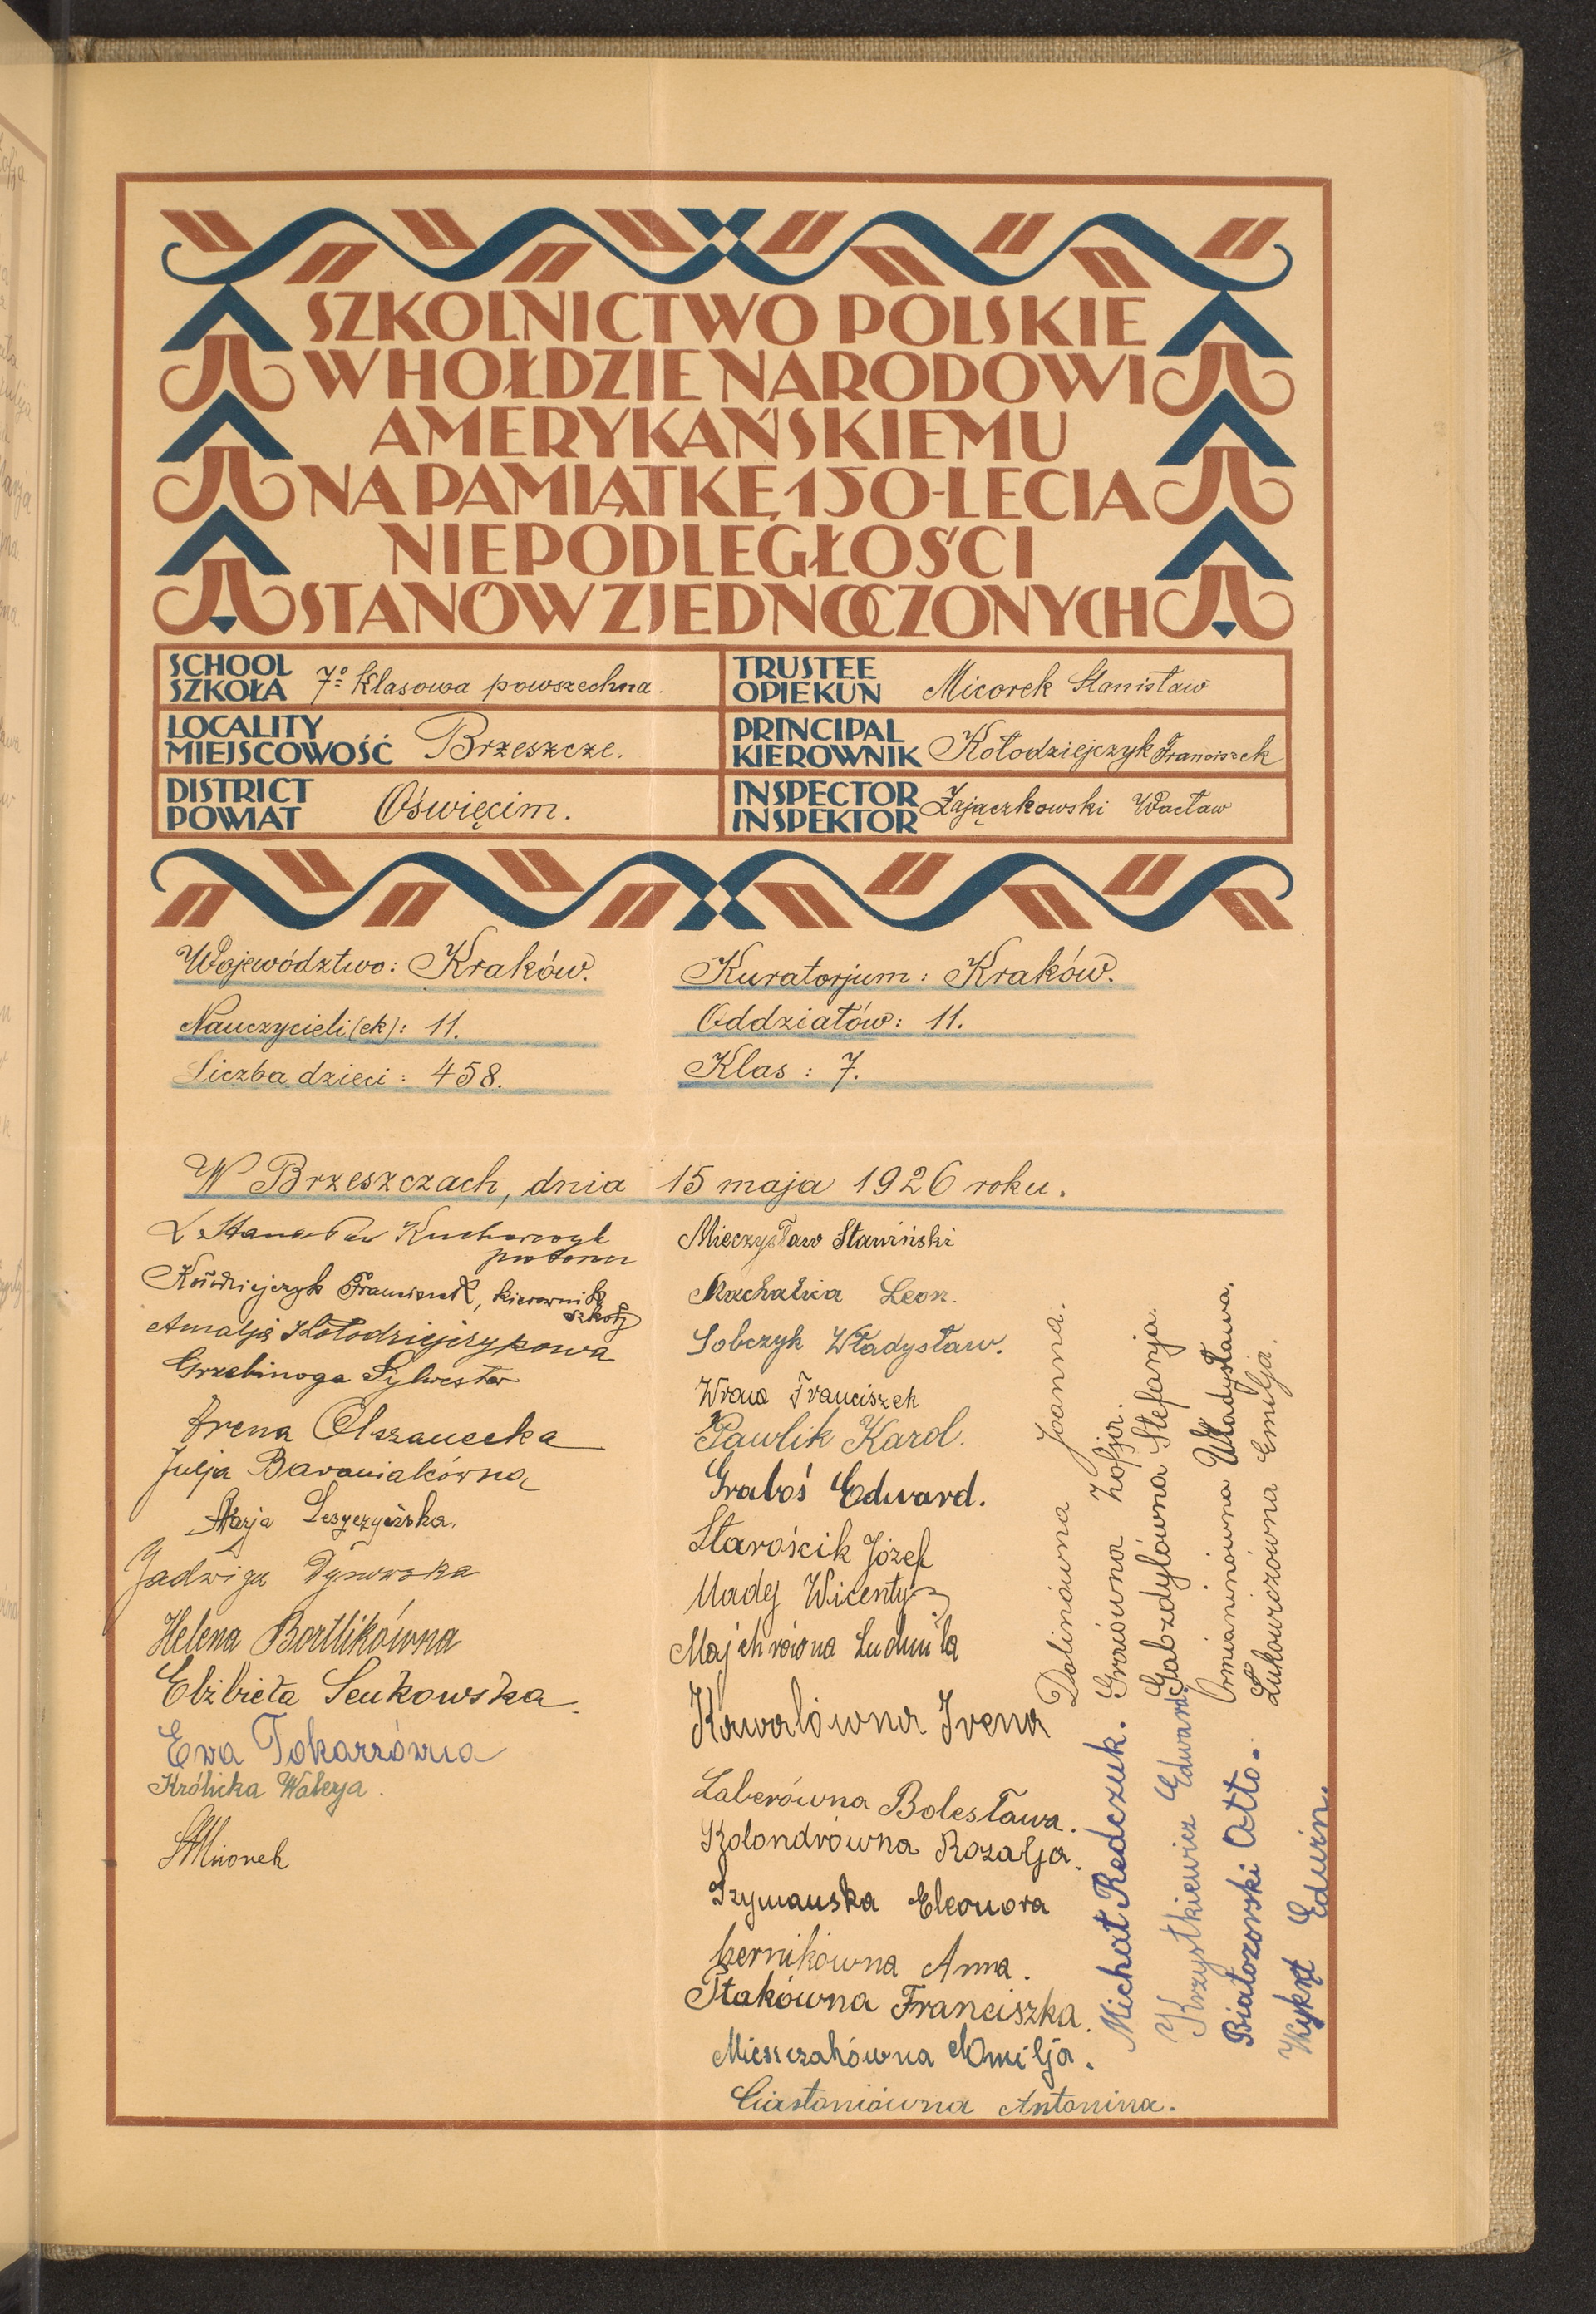 SZKOLNICTWO POLSKIE
W HOŁDZIE NARODOWI
AMERYKAŃSKIEMU
NA PAMIĄTKĘ 150-LECIA
NIEPODLEGŁOŚCI
STANÓW ZJEDNOCZONYCH
SCHOOL
SZKOŁA 7º klasowa powszechna.
TRUSTEE
OPIEKUN Micorek Stanisław
LOCALITY
MIEJSCOWOŚĆ Brzeszcze.
PRINCIPAL
KIEROWNIK Kołodziejczyk Franciszek
DISTRICT
POWIAT Oświęcim.
INSPECTOR
INSPEKTOR Zajączkowski Wacław
Województwo: Kraków.
Kuratorjum: Kraków.
Nauczycieli(ek): 11.
Oddziałów: 11.
Liczba dzieci: 458.
Klas: 7.
W Brzeszczach, dnia 15 maja 1926 roku.
Kołodziejczyk Franciszek, kierownik
szkoły
Amalja Kołodziejczykowa
Grzebinoga Sylwester
Irena Olszanecka
Julja Baraniakówna
Marja Leszczyńska.
Jadwiga
Helena Bortlikówna
Elżbieta Senkowska.
Ewa Tokarzówna
Królicka Walerja.
Mieczysław Stawiński
Leon.
Sobczyk Władysław.
Wrona Franciszek
Pawlik Karol.
Graboś Edward.
Starościk Józef
Madej Wicenty
Majchrówna Ludmiła
Kawalówna Irena
Laberówna Bolesława.
Kolondrówna Rozalja.
Szymańska Eleonora
Czernikówna Anna.
Ptakówna Franciszka.
Mieszczakówna Emilja.
Ciastoniówna Antonina.
Dolinówna Joanna.
Grziówna Zofja.
Gabzdylówna Stefanja.
Ormianinówna Władysława.
Łukowiczówna Emilja.
Michał Redczuk.
Krzystkiewicz Edward.
Białozorski Otto.
Wykręt Edwin.